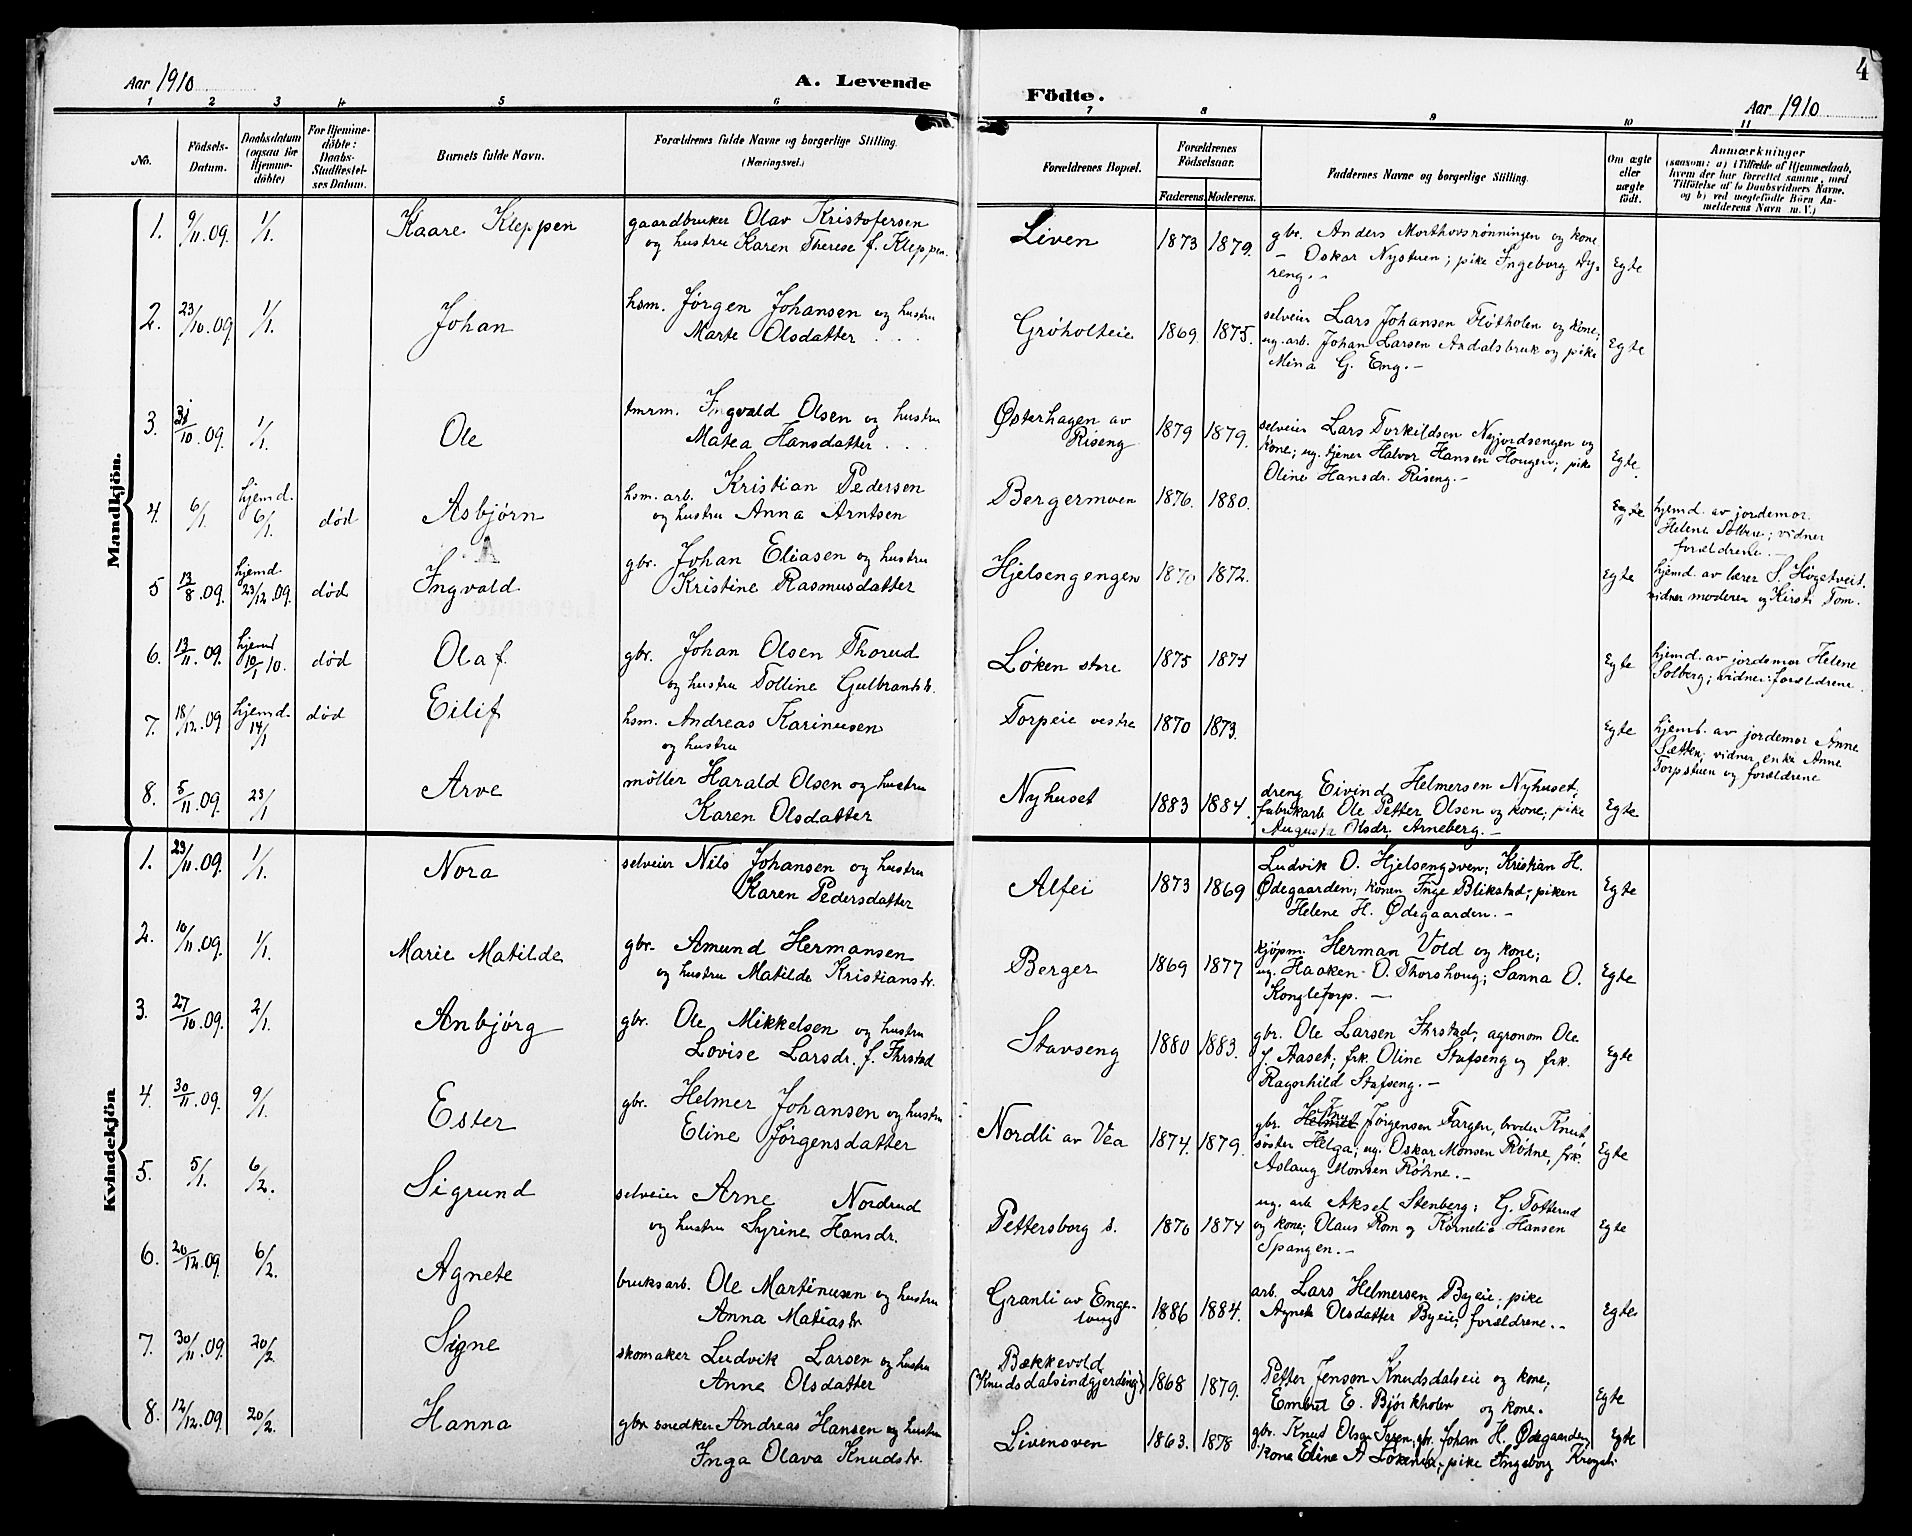 Aar 1910
A. Levende
Födte.
4
Aar 1910
1 2 3 4 5 6 7 8 9 10 11
No.
Födsels-
Datum.
Daabsdatum
(ogsaa for
Hjemme-
döbte)
For Hjemme-
döbte:
Daabs-
Stadfæstel-
ses Datum.
Barnets fulde Navn.
Forældrenes fulde Navne og borgerlige Stilling.
(Næringsvei.)
Forældrenes Bopæl.
Forældrenes
Födselsaar.
Faderens Moderens.
Faddernes Navne og borgerlige Stilling.
Om ægte
eller
uægte
födt.
Anmærkninger
(saasom: a) i Tilfælde af Hjemmedaab,
hvem der har forrettet samme, med
Tilföielse af to Daabsvidners Navne,
og b) ved uægtefödte Börn An-
melderens Navn m. V.)
Mandkjön.
1. 9/11.09. 1/1. Kaare Kleppen gaardbruker Olav Kristofersen Liven 1873 1879. gbr. Anders Morthovsrønningen og kone
og hustru Karen Therese f. Kleppen. – Oskar Nystuen; pike Ingeborg Dy- Egte
reng. –
2. 23/10.09. 1/1. Johan hsm. Jørgen Johansen og hustru Grøholteie 1869 1875. selveier Lars Johansen Fløtholen og kone;
Marte Olsdatter ug. arb. Johan Larsen Andalsbruk og pike Egte
Mina G. Eng. –
3. 31/10.09. 1/1. Ole tmrm. Ingvald Olsen og hustru Østerhagen av 1879 1879. selveier Lars Torkildsen Nyjordsengen og
Matea Hansdatter Riseng kone; ug. tjener Halvor Hansen Hougen; pike Egte.
Oline Hansdr. Riseng. –
4. 6/1. hjemd. 6/1. død Asbjørn hsm. arb. Kristian Pedersen Bergermoen 1876. 1880. Egte hjemd. av jordemor
og hustru Anna Arntsen Helene Solberg; vidner
forældrene. –
5 13/8.09. hjemd. 23/12.09. død Ingvald gbr. Johan Eliasen og hustru Hjelsengengen 1870 1872. Egte hjemd. av lærer S. Høgetveit.
Kristine Rasmusdatter vidner moderen og Kirsti Tom.
6. 13/11.09. hjemd 10/1 10. død Olaf. gbr. Johan Olsen Thorud Løken store 1875 1874 Egte hjemd. av jordemor Helene
og hustru Tolline Gulbrandsdtr. Solberg; vidner: forældrene.
7. 18/12.09 hjemd. 14/1 død Eilif hsm. Andreas Karinusen Torpeie vestre 1870 1873. Egte hjemd. av jordemor Anne
og hustru Sætten; vidner enke Anne
Torpstuen og forældrene
8. 5/11.09. 23/1 Arve møller Harald Olsen og hustru Nyhuset 1883 1884. dreng Eivind Helmersen Nyhuset,
Karen Olsdatter fabrikarb Ole Petter Olsen og kone; pike Egte
Augusta Olsdr. Arneberg. –
Kvindekjön
1. 23/11.09. 1/1. Nora selveier Nils Johansen og hustru Alfei 1873 1869 Ludvik O. Hjelsengsven; Kristian H.
Karen Pedersdatter Ødegaarden; konen Inge Blikstad; piken Egte
Helene H. Ødegaarden. –
2. 10/11.09. 1/1. Marie Matilde gbr. Amund Hermansen Berger 1869 1877 kjøpm. Herman Vold og kone;
og hustru Matilde Kristiansdtr. ug. Haaken O. Thorshoug; Sanna O. Egte
Kongletorp. –
3. 27/10.09. 2/1. Anbjørg gbr. Ole Mikkelsen og hustru Stavseng 1880 1883. gbr. Ole Larsen Ihrstad; agronom Ole
Lovise Larsdr. f. Ihrstad J. Aaset; frk. Oline Stafseng og frk. Egte
Ragnhild Stafseng. –
4. 30/11.09. 9/1. Ester gbr. Helmer Johansen og hustru Nordli av Vea 1874. 1879. gbr. Jørgensen Fargen, broder Knut,
Eline Jørgensdatter søster Helga; ug. Oskar Monsen Røhne, frk. Egte
Aslaug Monsen Røhne. –
5. 5/1. 6/2. Sigrund selveier Arne Nordrud Pettersborg s. 1870 1874 ug. arb Aksel Stenberg; G. Totterud
og hustru Syrine Hansdr. og kone; Olaus Rom og Kornelia Hansen Egte
Spangen. –
6. 20/12.09. 6/2. Agnete bruksarb. Ole Martinusen og hustru Granli av Enge- 1886 1884. arb. Lars Helmersen Byeie; pike
Anna Matiasdtr. loug Agnete Olsdatter Byeie; forældrene. – Egte
7. 30/11.09. 20/2 Signe skomaker Ludvik Larsen og hustru Bækkevold 1868 1879. Petter Jenson Knudsdalseie og kone;
Anne Olsdatter (Knudsdalsindgjerding) Embret E. Bjørkholen og kone. Egte
8. 12/12.09. 20/2. Hanna gbr snedker Andreas Hansen og hustru Livensven 1863. 1878 gbr. Knud Olsen gbr. Johan H. Ødegaarden Egte
Inga Olava Knudsdtr. kone Eline A Løkens; pike Ingeborg